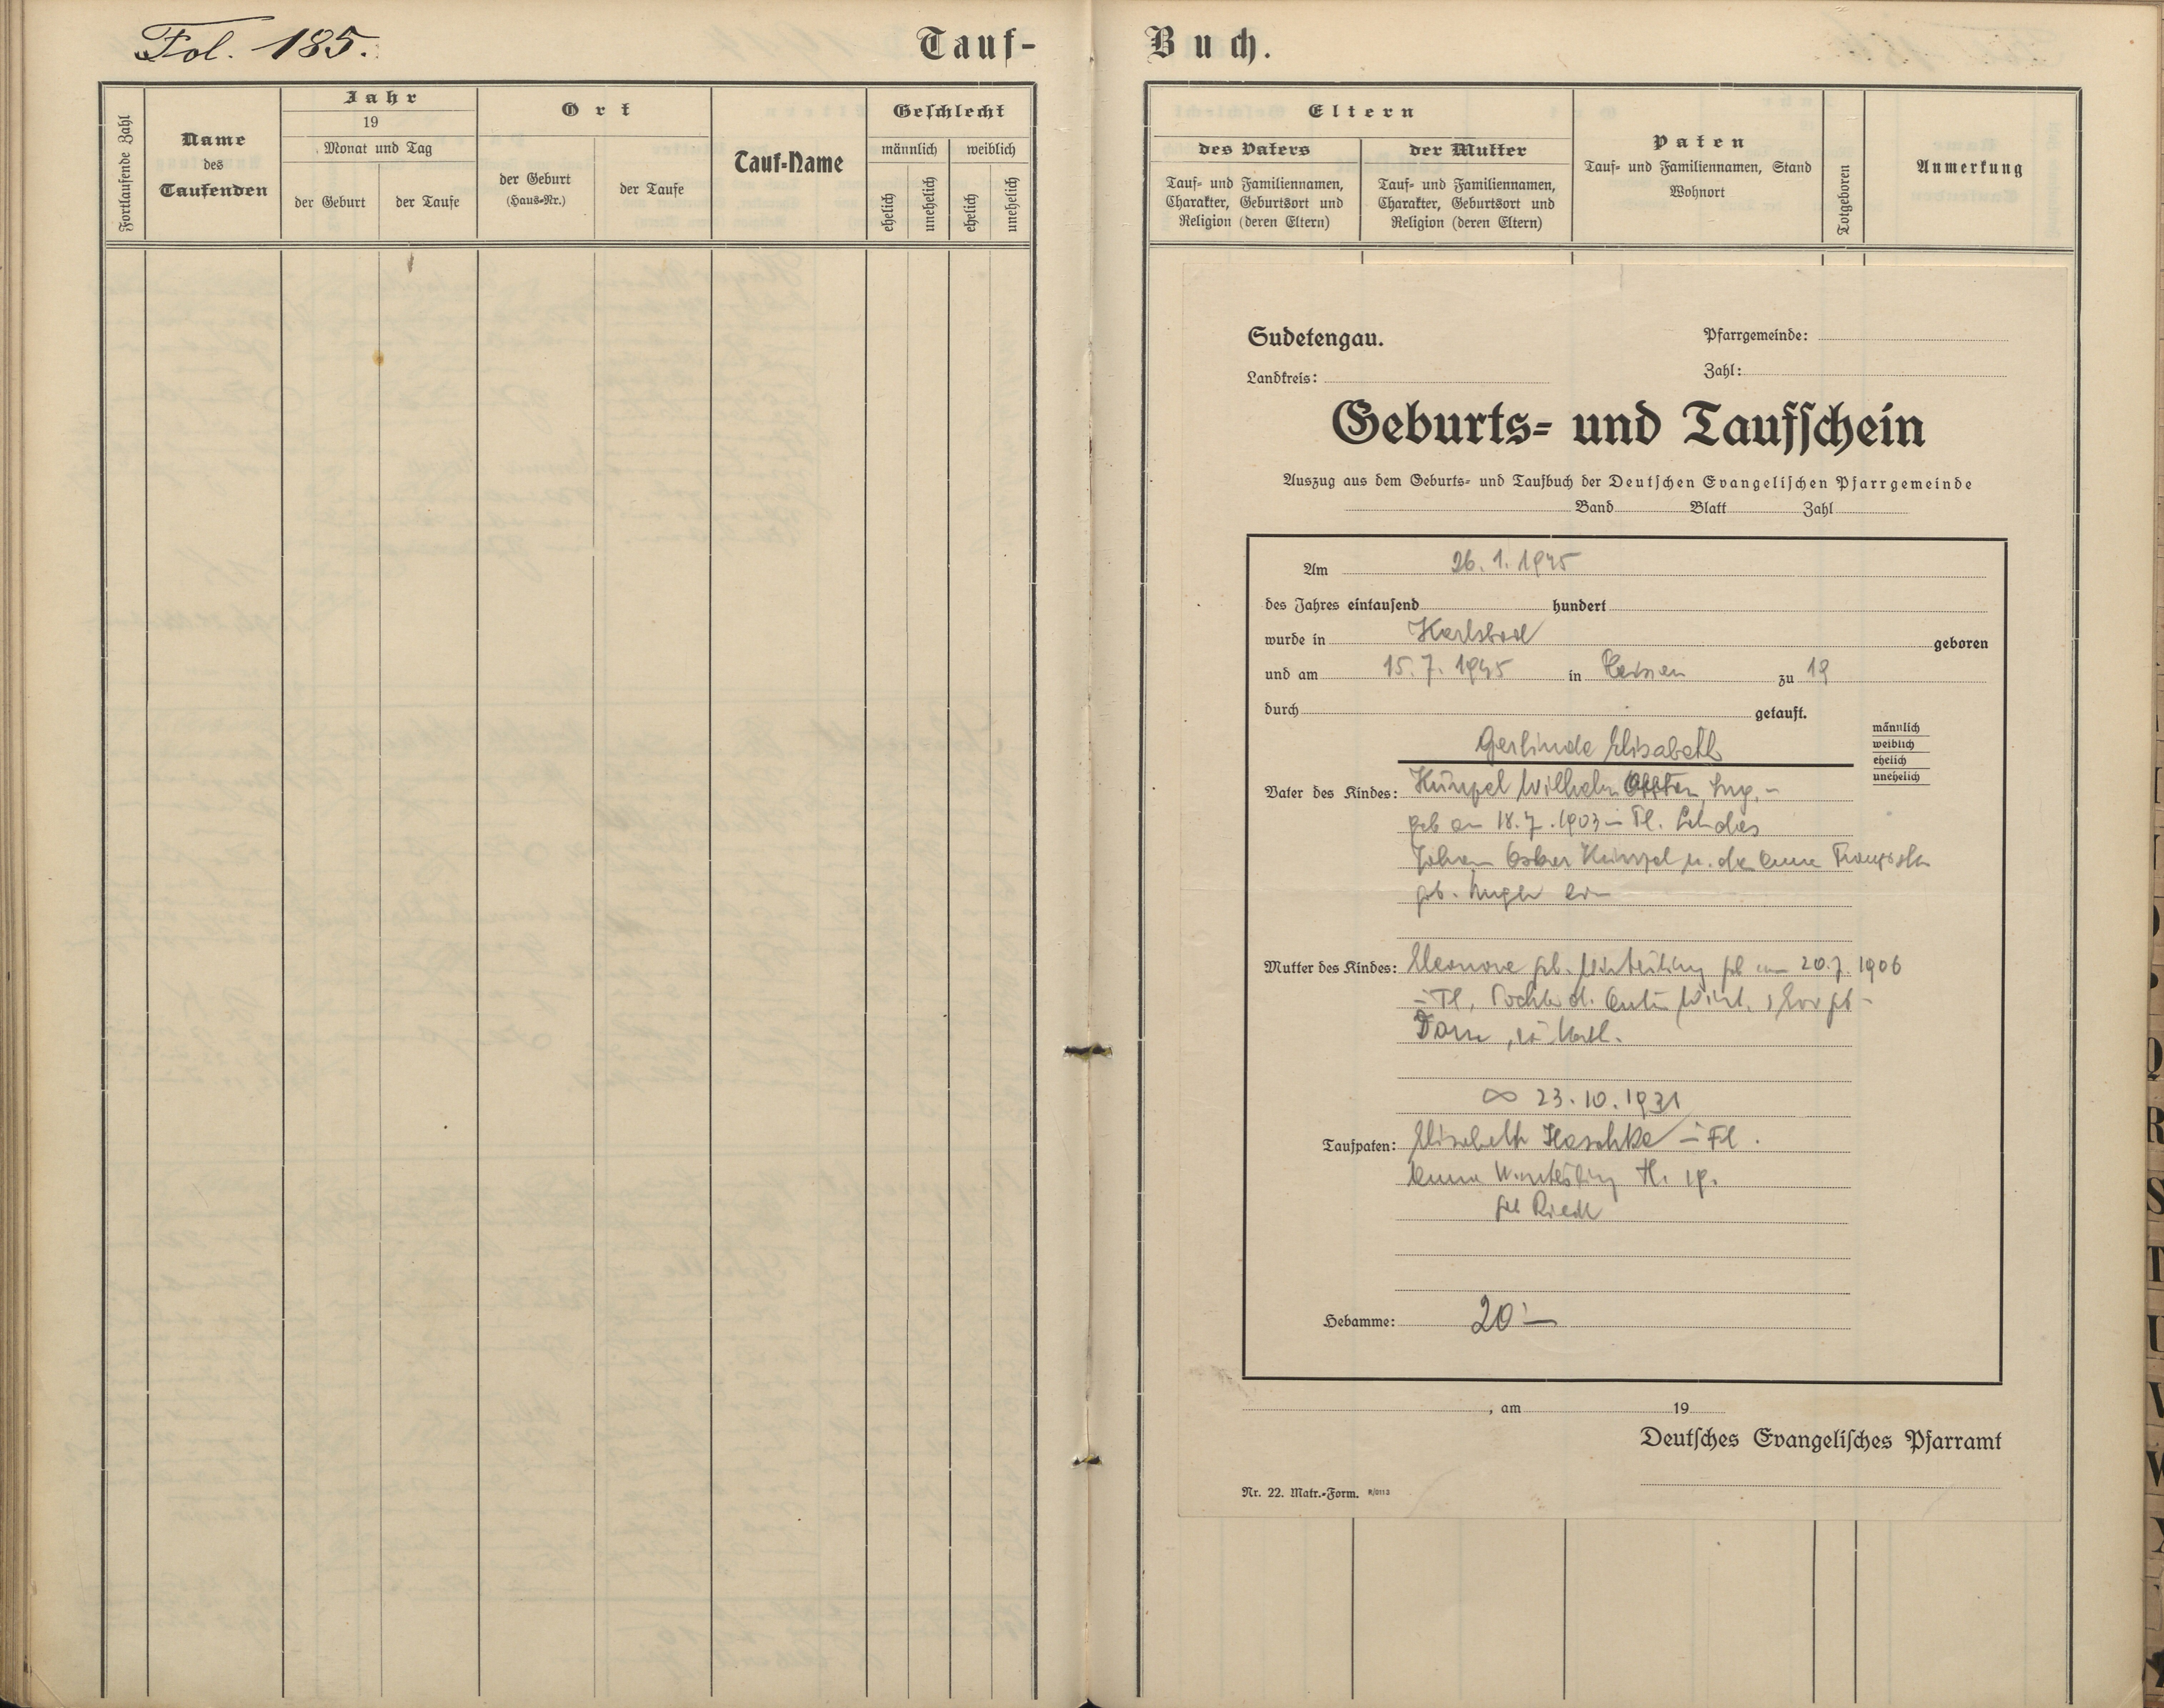 Fol. 185.
Tauf-
Buch.
Fortlaufende Zahl
Name
des
Taufenden
Jahr
19
Monat und Tag
der Geburt
der Taufe
Ort
der Geburt
(Haus-Nr.)
der Taufe
Tauf-Name
Geschlecht
männlich
weiblich
ehelich
unehelich
ehelich
unehelich
Eltern
des Vaters
der Mutter
Tauf- und Familiennamen,
Charakter, Geburtsort und
Religion (deren Eltern)
Tauf- und Familiennamen,
Charakter, Geburtsort und
Religion (deren Eltern)
Paten
Tauf- und Familiennamen, Stand
Wohnort
Totgeboren
Anmerkung
Sudetengau.
Pfarrgemeinde:
Landkreis:
Zahl:
Geburts- und Taufschein
Auszug aus dem Geburts- und Taufbuch der Deutschen Evangelischen Pfarrgemeinde
Band Blatt Zahl
Am 26. 1. 1945
des Jahres eintausend hundert
wurde in Karlsbad geboren
und am 15. 7. 1945 in zu 19
durch getauft.
männlich
weiblich
ehelich
unehelich
Gerlinde Elisabeth
Vater des Kindes: Künzel Wilhelm Ing. -
geb 18. 7. 1903
Künzel u. der
geb.
Mutter des Kindes: Eleonore geb. geb 20. 7. 1906
∞ 23. 10. 1931
Taufpaten: Elisabeth Haschke
Winterling
geb Riedl
Hebamme: 20.-
, am 19
Deutsches Evangelisches Pfarramt
Nr. 22. Matr.-Form.